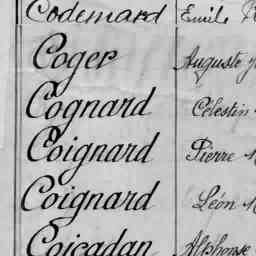 Codemard Emile
Coger Auguste
Cognard Célestin
Coignard Pierre
Coignard Léon
Coicadan Alphonse